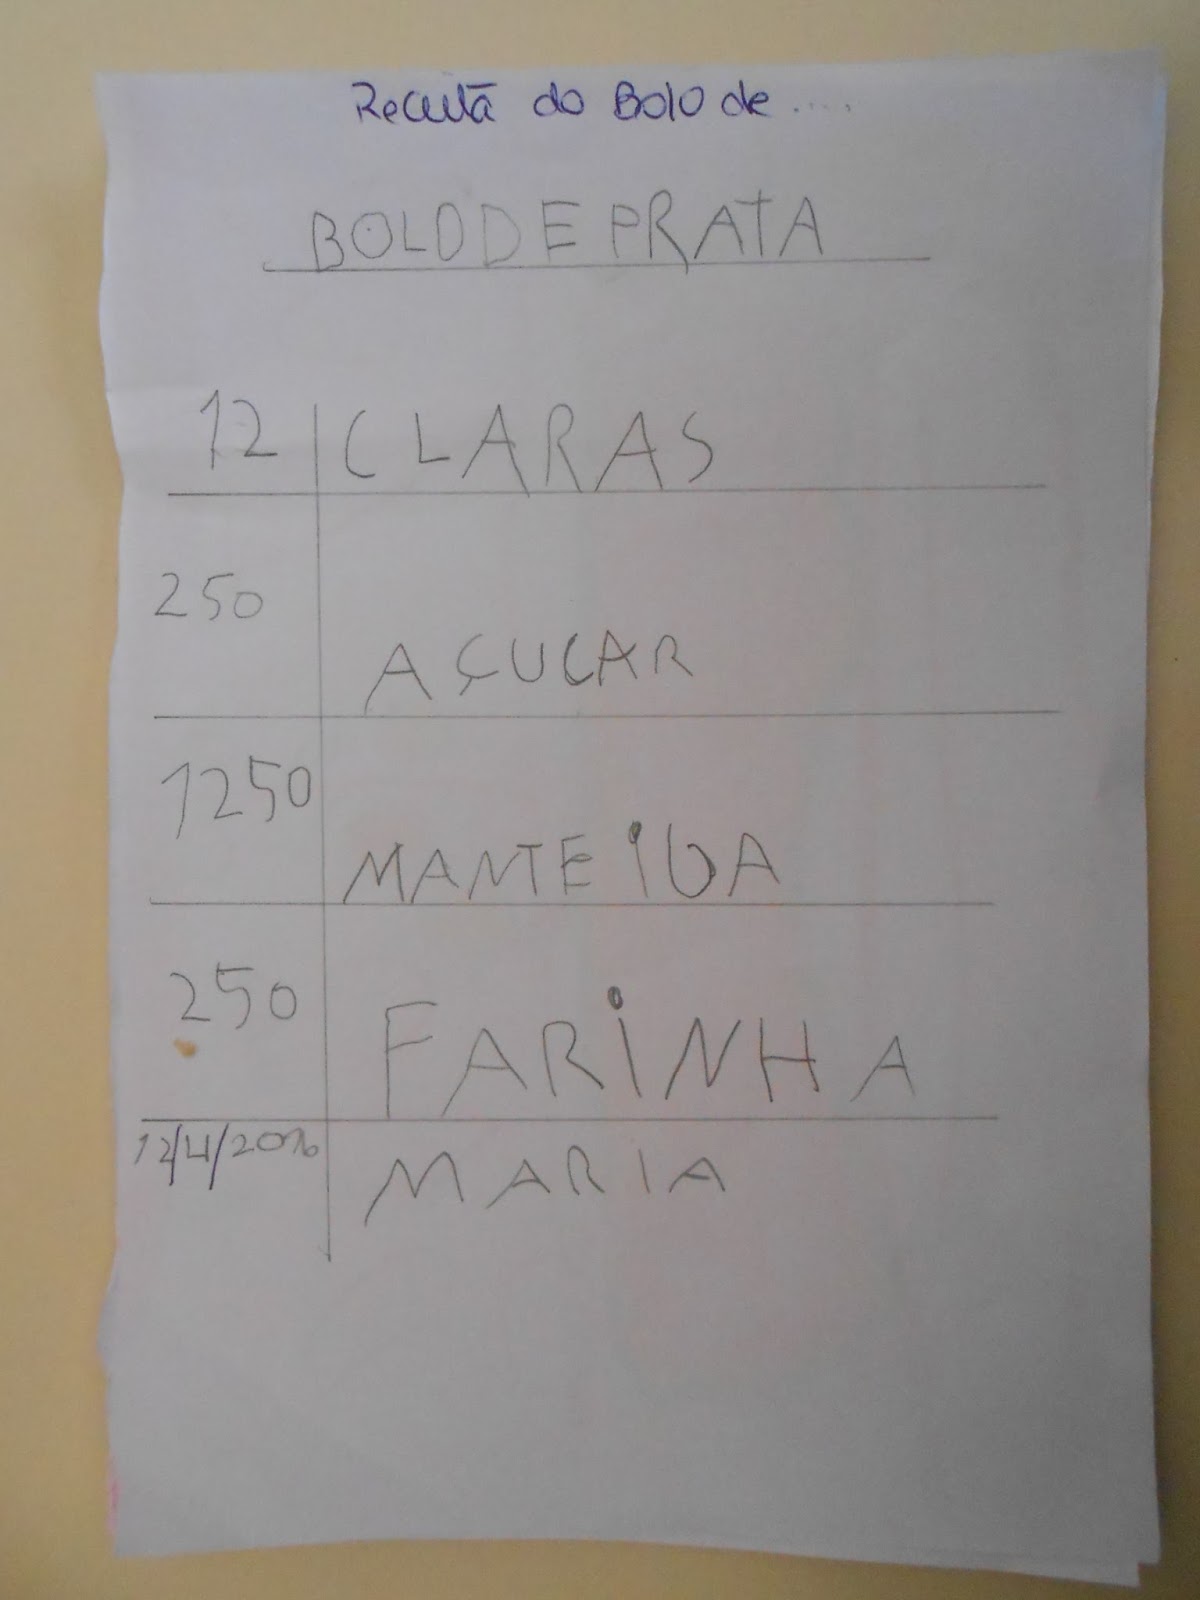 Receita do Bolo de .....
BOLO DE PRATA
12 CLARAS
250 AÇUCAR
1250 MANTEIGA
250 FARINHA
12/4/2016 MARIA